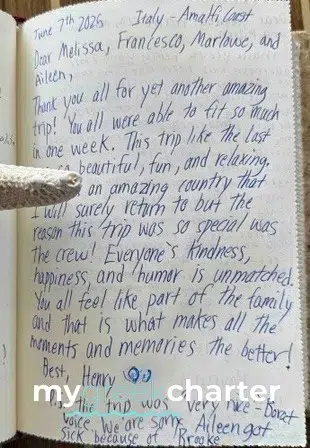 June 7th 2025 Italy - Amalfi Coast
Dear Melissa, Francesco, Marlowe, and
Aileen,
Thank you all for yet another amazing
trip! You all were able to fit so much
in one week. This trip like the last
beautiful, fun, and relaxing.
an amazing country that
I will surely return to but the
reason this trip was so special was
the crew! Everyone's kindness,
happiness, and humor is unmatched.
You all feel like part of the family
and that is what makes all the
moments and memories the better!
Best, Henry
my charter
the trip was very nice - Borat
voice. We are sorry Aileen got
sick because of Brooke